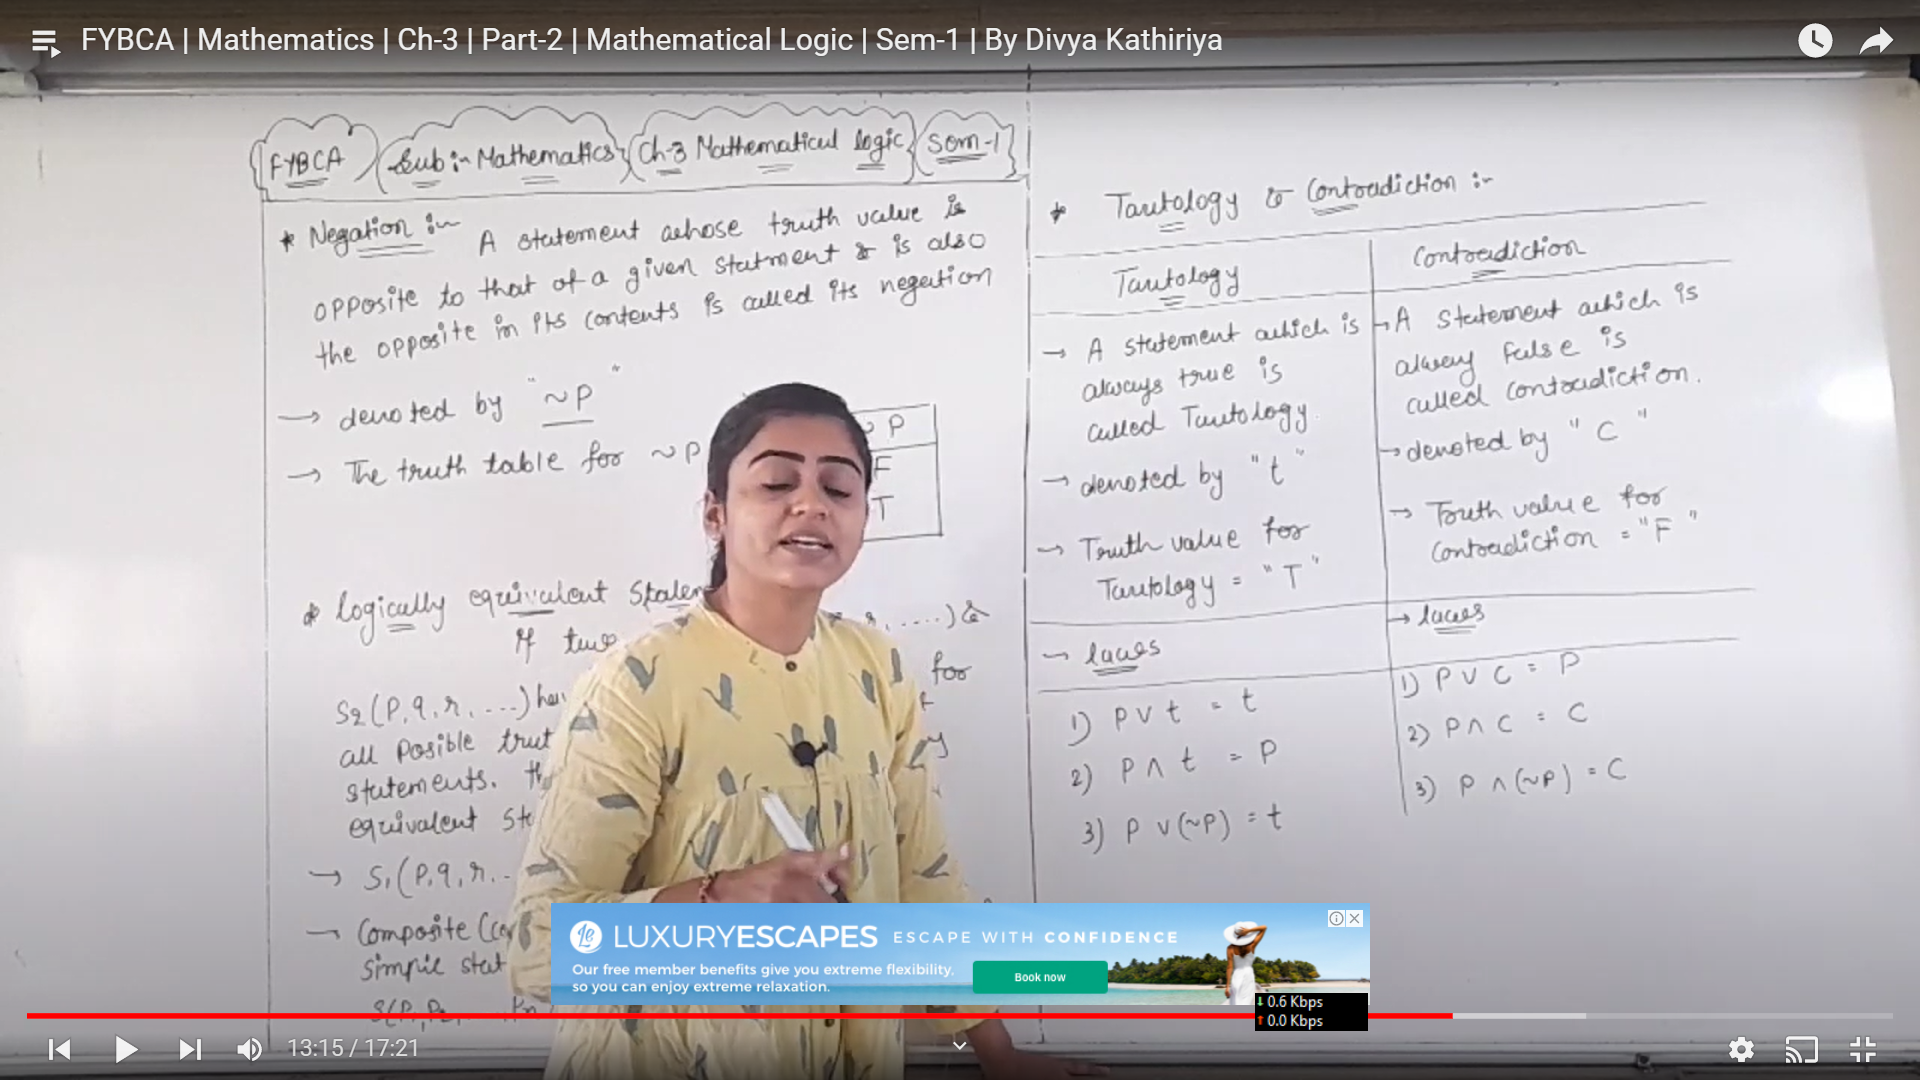 FYBCA | Mathematics | Ch-3 | Part-2 | Mathematical Logic | Sem-1 | By Divya Kathiriya
FYBCA Sub:- Mathematics Ch-3 Mathematical logic Sem-1
* Negation :- A statement whose truth value is
opposite to that of a given statment & is also
the opposite in its contents is called its negation
→ denoted by "~P"
→ The truth table for ~P
~ P
F
T
* logically equivalent
If two
r, ....) &
S2 (P, q, r, ...) for
all Posible
statements.
equivalent
→ S1 (P, q, r..
→ Composite
simple
* Tautology & Contradiction :-
Tautology
→ A statement which is
always true is
called Tautology.
→ denoted by "t"
→ Truth value for
Tautology = "T"
→ laws
1) P ∨ t = t
2) P ∧ t = P
3) P ∨ (~P) = t
Contradiction
→ A statement which is
alway false is
called contradiction.
→ denoted by "C"
→ Truth value for
Contradiction = "F"
→ laws
1) P ∨ C = P
2) P ∧ C = C
3) P ∧ (~P) = C
LUXURYESCAPES ESCAPE WITH CONFIDENCE
Our free member benefits give you extreme flexibility,
so you can enjoy extreme relaxation.
Book now
↓ 0.6 Kbps
↑ 0.0 Kbps
13:15 / 17:21